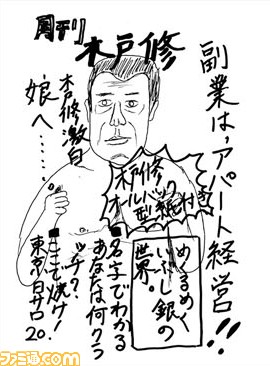 週刊
木戸修
副業は、アパート経営!!
木戸修激白
娘へ……
木戸修
オールバック
型紙付き
めるめく
いぶし銀の
世界。
名字でわかる
あなたは何クラ
ッチ?
ここまで焼け!
東京日サロ
20.
ファミ通.com